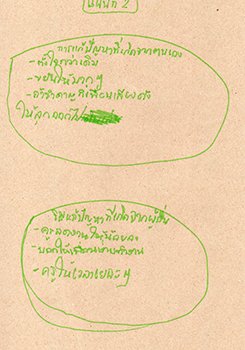 แผนที่ 2
การแก้ปัญหาที่เกิดจากตนเอง
- ตั้งใจกว่าเดิม
- ขยันให้มากๆ
- ถ้ารำคาญที่เพื่อนเสียงดัง
ให้ลุกออกไป
วิธีแก้ปัญหาที่เกิดจากผู้อื่น
- ครูลดงานให้น้อยลง
- บอกให้เพื่อน
- ครูให้เวลาเยอะๆ